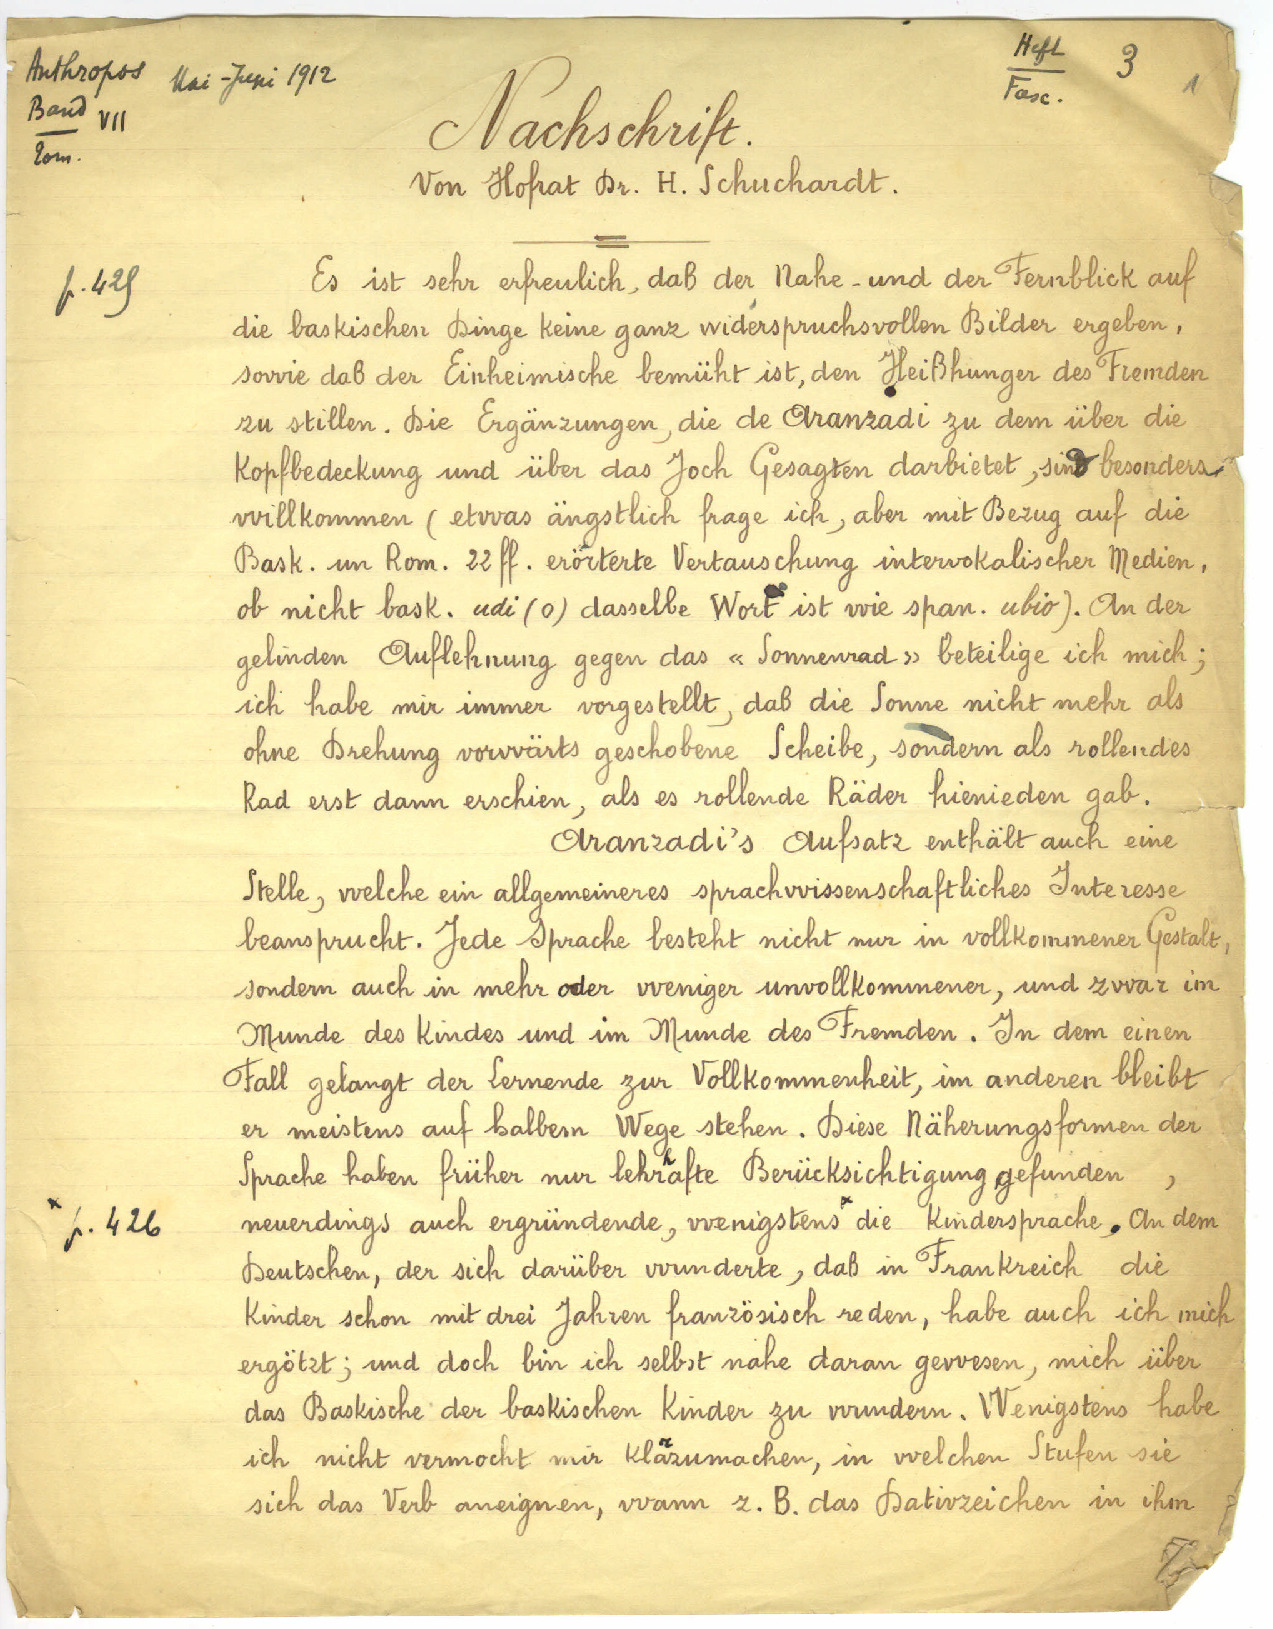 Anthropos Mai-Juni 1912
Band VII
Tom.
Heft 3 1
Fasc.
Nachschrift.
Von Hofrat Dr. H. Schuchardt.
p. 425
Es ist sehr erfreulich, daß der Nahe- und der Fernblick auf
die baskischen Dinge keine ganz widerspruchsvollen Bilder ergeben,
sowie daß der Einheimische bemüht ist, den Heißhunger des Fremden
zu stillen. Die Ergänzungen, die de Aranzadi zu dem über die
Kopfbedeckung und über das Joch Gesagten darbietet, sind besonders
willkommen (etwas ängstlich frage ich, aber mit Bezug auf die
Bask. un Rom. 22 ff. erörterte Vertauschung intervokalischer Medien,
ob nicht bask. udi (o) dasselbe Wort ist wie span. ubio). An der
gelinden Auflehnung gegen das « Sonnenrad » beteilige ich mich;
ich habe mir immer vorgestellt, daß die Sonne nicht mehr als
ohne Drehung vorwärts geschobene Scheibe, sondern als rollendes
Rad erst dann erschien, als es rollende Räder hienieden gab.
Aranzadi's Aufsatz enthält auch eine
Stelle, welche ein allgemeineres sprachwissenschaftliches Interesse
beansprucht. Jede Sprache besteht nicht nur in vollkommener Gestalt,
sondern auch in mehr oder weniger unvollkommener, und zwar im
Munde des Kindes und im Munde des Fremden. In dem einen
Fall gelangt der Lernende zur Vollkommenheit, im anderen bleibt
er meistens auf halbem Wege stehen. Diese Näherungsformen der
Sprache haben früher nur lehrhafte Berücksichtigung gefunden ,
x p. 426
neuerdings auch ergründende, wenigstens x die Kindersprache. An dem
Deutschen, der sich darüber wunderte, daß in Frankreich die
Kinder schon mit drei Jahren französisch reden, habe auch ich mich
ergötzt; und doch bin ich selbst nahe daran gewesen, mich über
das Baskische der baskischen Kinder zu wundern. Wenigstens habe
ich nicht vermocht mir klarzumachen, in welchen Stufen sie
sich das Verb aneignen, wann z. B. das Dativzeichen in ihm